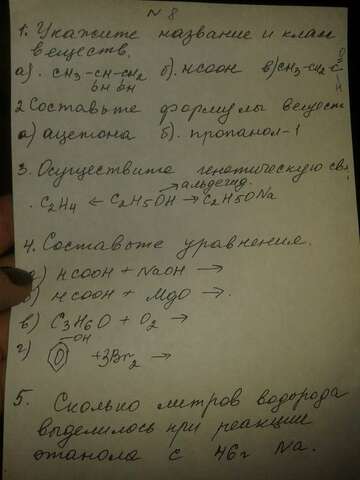 № 8
1. Укажите название и клас
веществ.
а). CH3 – CH – CH2 б). HCOOH в) CH3 – CH2 – C
OH OH O H
2 Составьте формулы вещест
а) ацетона б). пропанол – 1
3. Осуществите генетическую свя
→ альдегид.
C2H4 ← C2H5OH → C2H5ONa
4. Составьте уравнения.
а) HCOOH + NaOH →
б) HCOOH + MgO →.
в) C3H6O + O2 →
г) OH + 3Br2 →
5. Сколько литров водорода
выделилось при реакции
этанола с 46г Na.